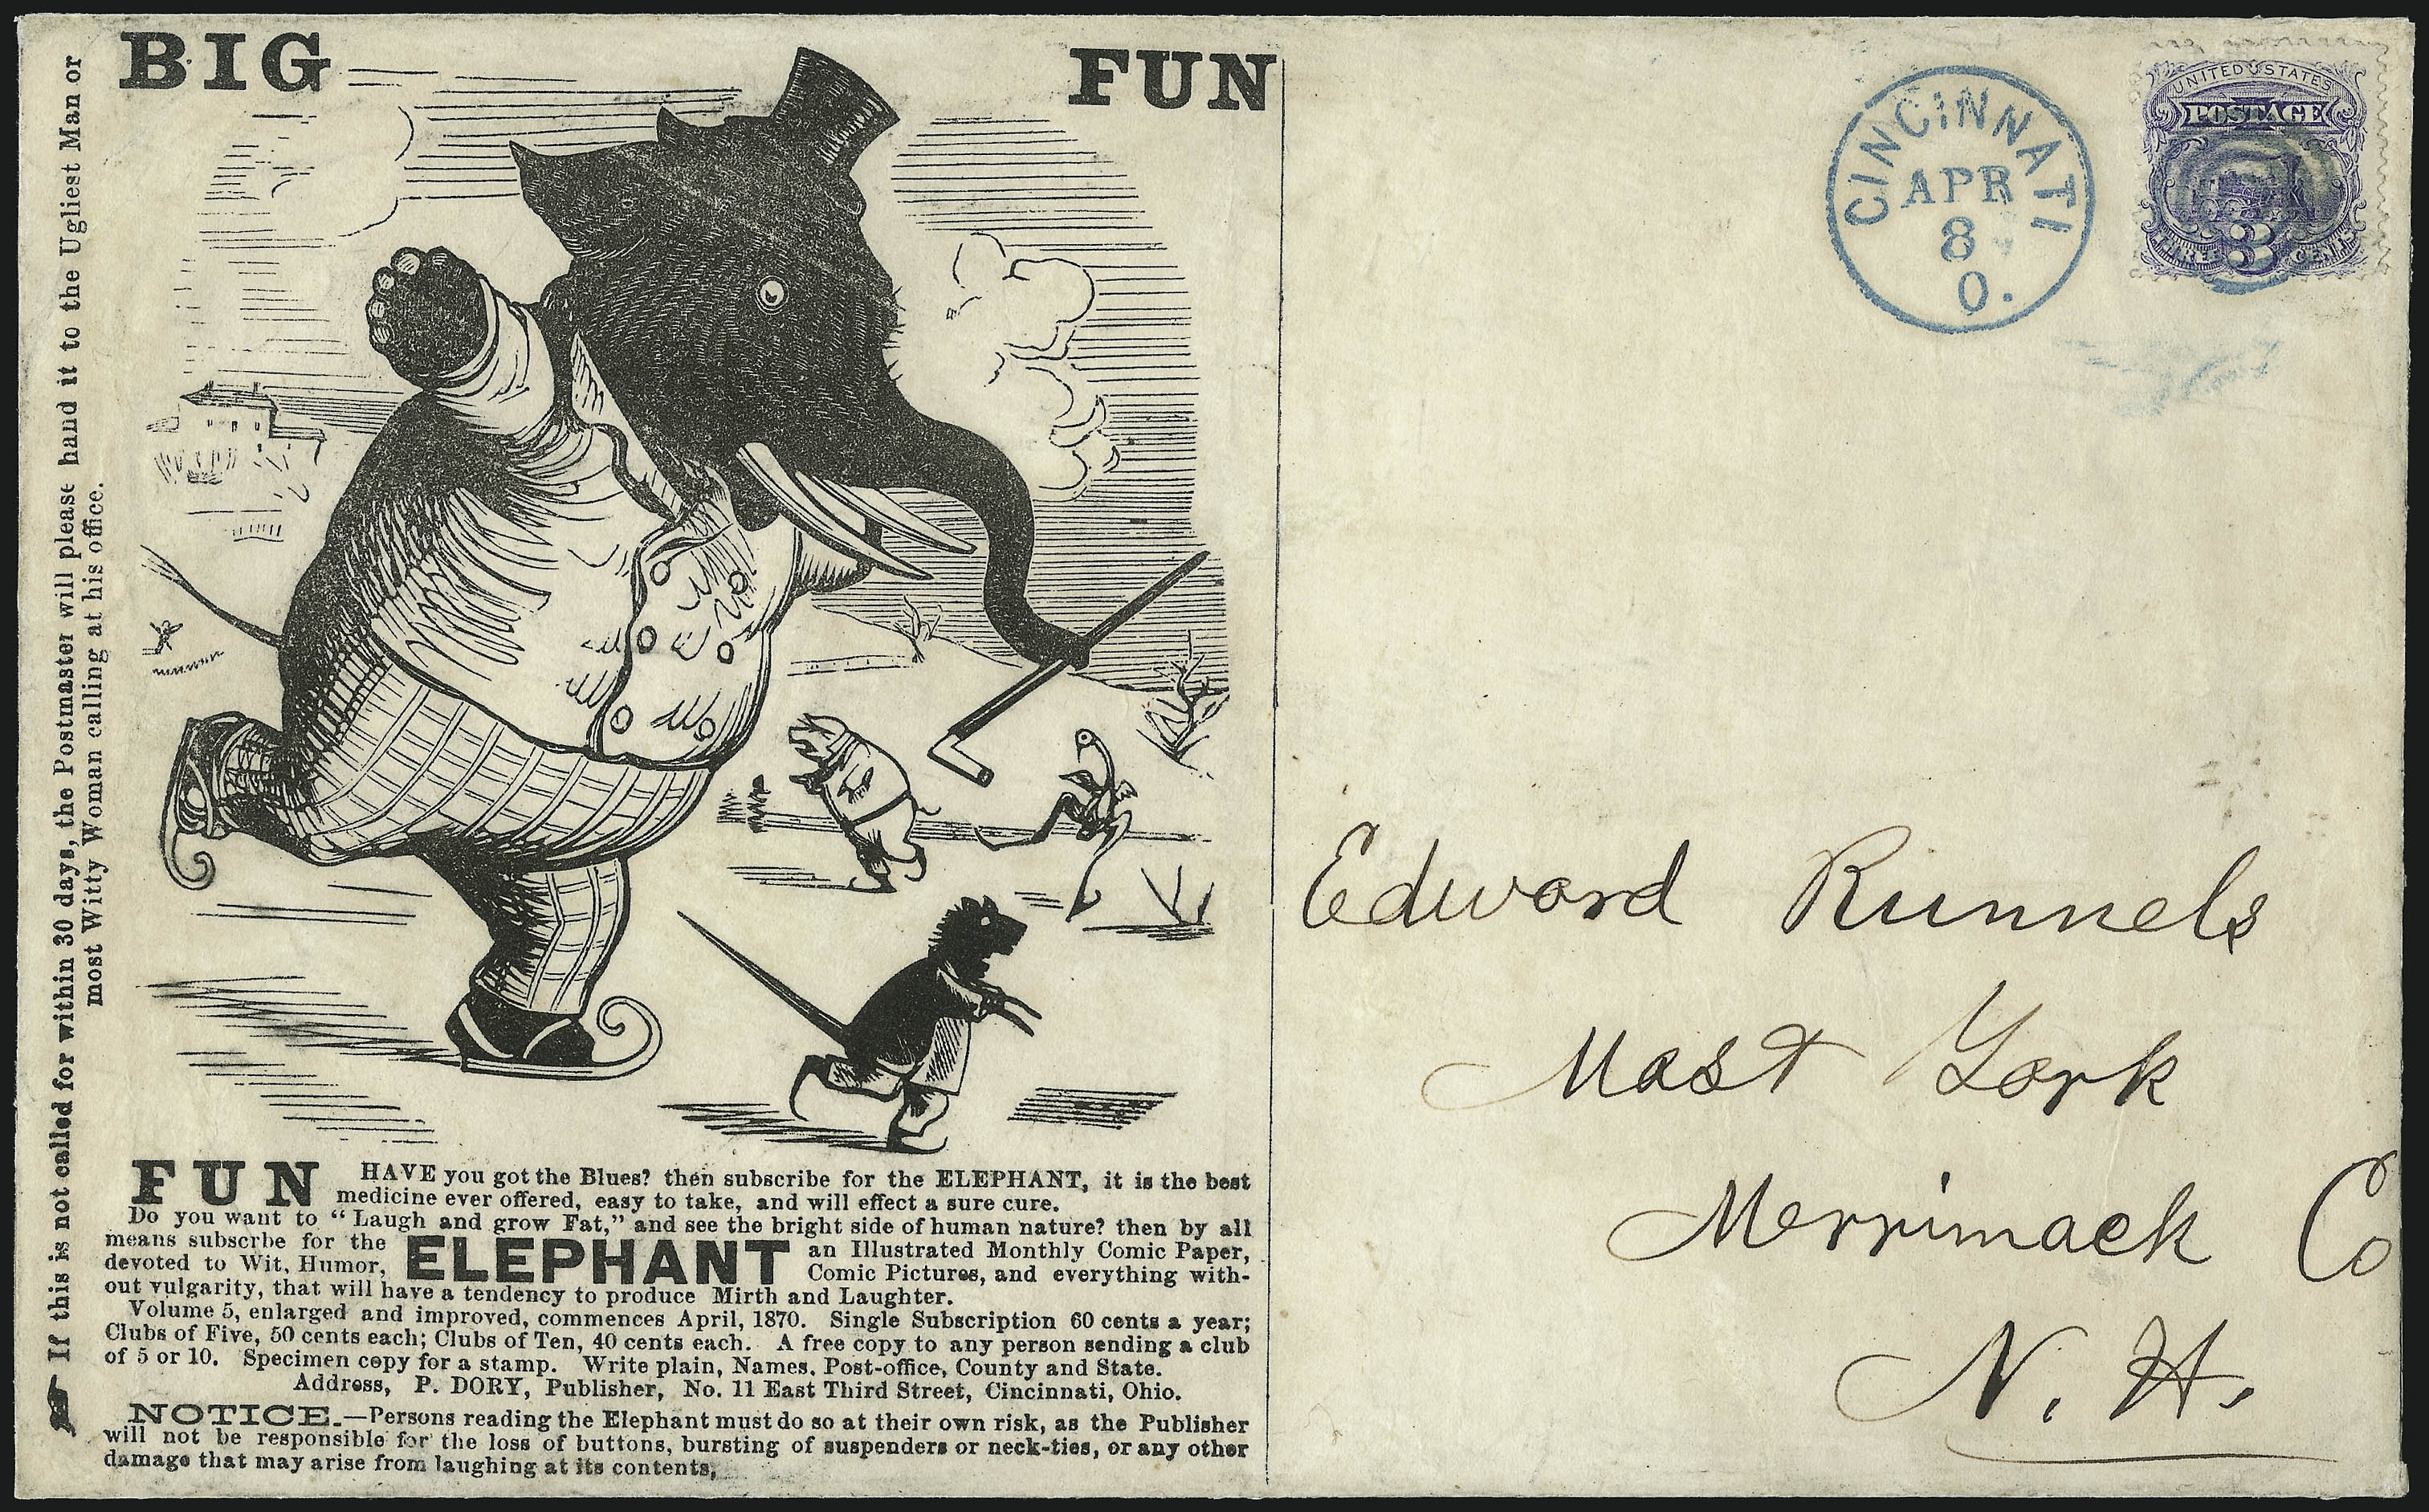 BIG FUN
If this is not called for within 30 days, the Postmaster will please hand it to the Ugliest Man or
most Witty Woman calling at his office.
FUN HAVE you got the Blues? then subscribe for the ELEPHANT, it is the best
medicine ever offered, easy to take, and will effect a sure cure.
Do you want to "Laugh and grow Fat," and see the bright side of human nature? then by all
means subscrbe for the ELEPHANT an Illustrated Monthly Comic Paper,
devoted to Wit, Humor, Comic Pictures, and everything with-
out vulgarity, that will have a tendency to produce Mirth and Laughter.
Volume 5, enlarged and improved, commences April, 1870. Single Subscription 60 cents a year;
Clubs of Five, 50 cents each; Clubs of Ten, 40 cents each. A free copy to any person sending a club
of 5 or 10. Specimen copy for a stamp. Write plain, Names, Post-office, County and State.
Address, P. DORY, Publisher, No. 11 East Third Street, Cincinnati, Ohio.
NOTICE.—Persons reading the Elephant must do so at their own risk, as the Publisher
will not be responsible for the loss of buttons, bursting of suspenders or neck-ties, or any other
damage that may arise from laughing at its contents,
CINCINNATI
APR
8
O.
UNITED STATES
POSTAGE
THREE 3 CENTS
Edward Runnels
Mast York
Merrimack Co
N. H.